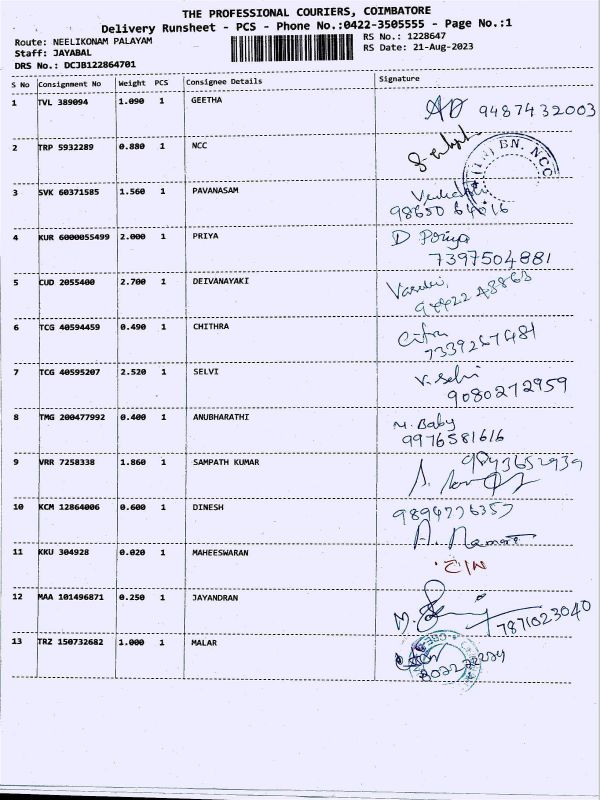 THE PROFESSIONAL COURIERS, COIMBATORE
Delivery Runsheet - PCS - Phone No.:0422-3505555 - Page No.:1
Route: NEELIKONAM PALAYAM RS No.: 1228647
Staff: JAYABAL RS Date: 21-Aug-2023
DRS No.: DCJB122864701
S No Consignment No Weight PCS Consignee Details Signature
1 TVL 389094 1.090 1 GEETHA 9487432003
2 TRP 5932289 0.880 1 NCC
BN. NCC
3 SVK 60371585 1.560 1 PAVANASAM
98650 64016
4 KUR 6000055499 2.000 1 PRIYA D Poriya
7397504881
5 CUD 2055400 2.700 1 DEIVANAYAKI
94422 48863
6 TCG 40594459 0.490 1 CHITHRA Citra
7339267481
7 TCG 40595207 2.520 1 SELVI V. Selvi
9080272959
8 TMG 200477992 0.400 1 ANUBHARATHI M. Baby
9976581616
9 VRR 7258338 1.860 1 SAMPATH KUMAR 9843652939
10 KCM 12864006 0.600 1 DINESH 9894776357
11 KKU 304928 0.020 1 MAHEESWARAN
12 MAA 101496871 0.250 1 JAYANDRAN
7871023040
13 TRZ 150732682 1.000 1 MALAR